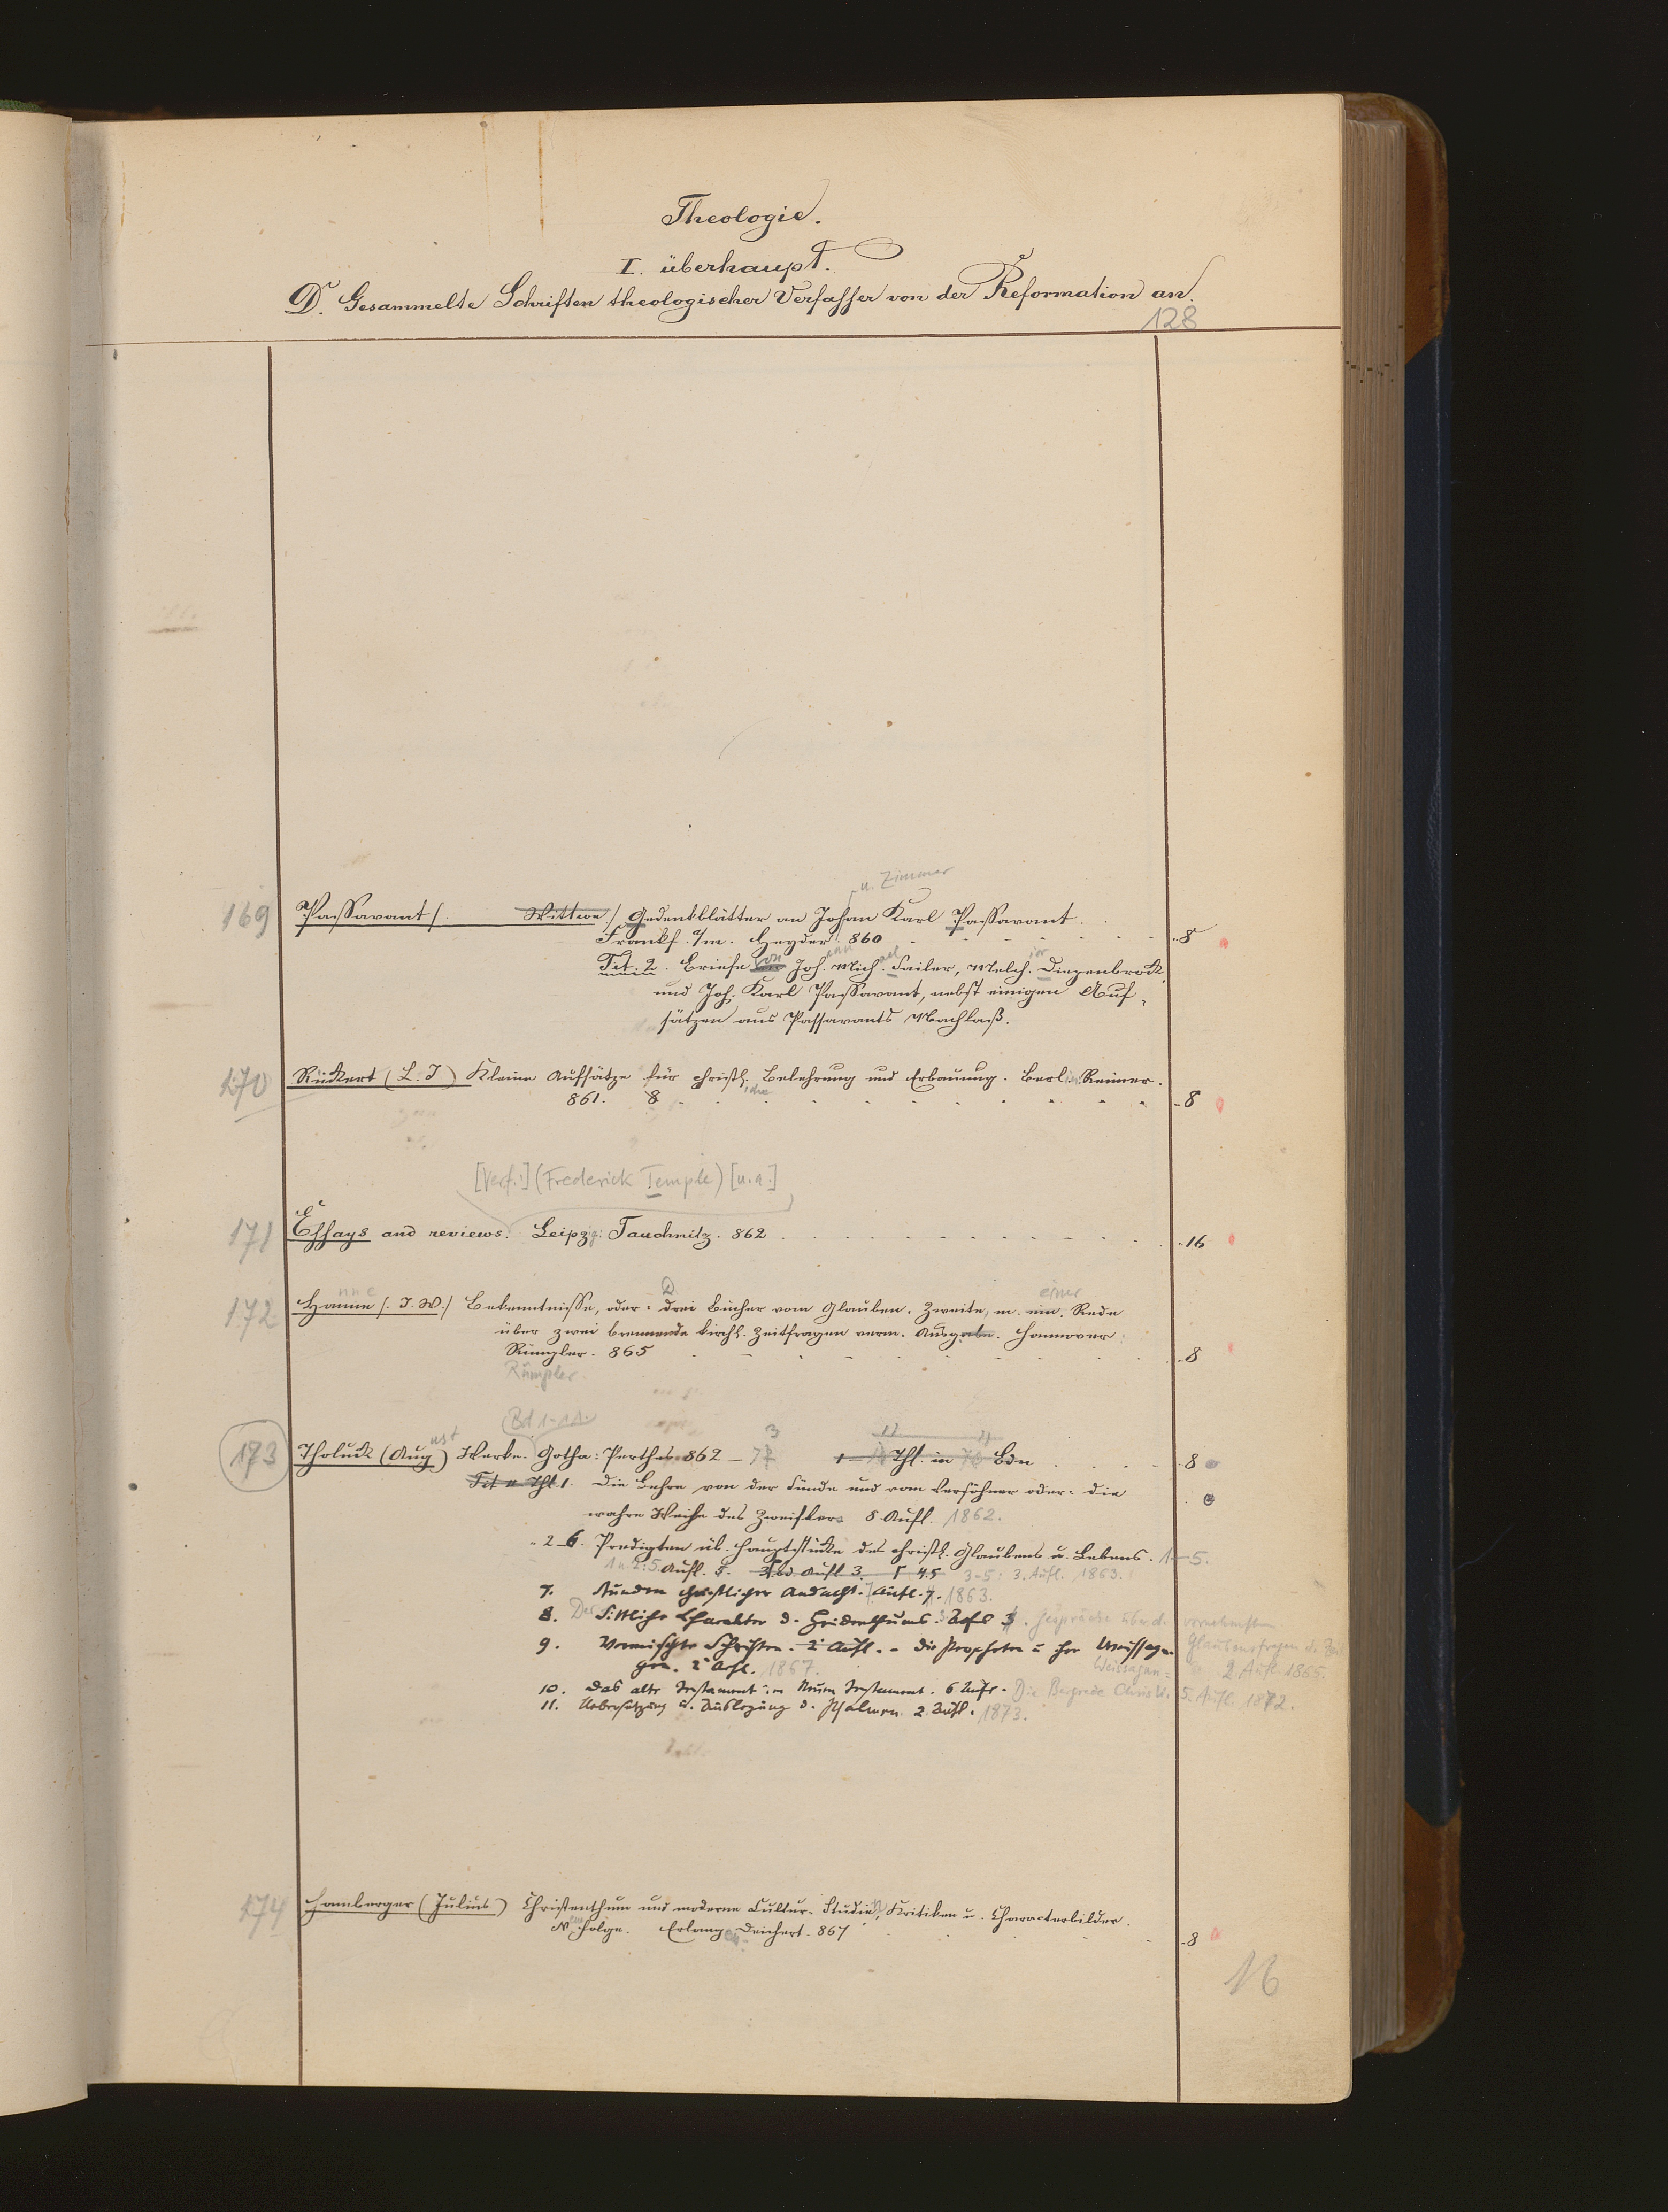 Theologie.
I. überhaupt.
D. Gesammelte Schriften theologischer Verfasser von der Reformation an.
128
u. Zimmer
169 Passavant (. Wittwe) Gedenkblätter an Johan Karl Passavant.
Frankf. a/m. Heyder. 860 8
Tit. 2. Briefe von Joh.ann Mich.ael Sailer, Melch.ior Diepenbrock
und Joh. Karl Passavant, nebst einigen Auf-
sätzen aus Passavants Nachlaß.
170 Rückert (L. J) Kleine Aufsätze für christl.iche Belehrung und Erbauung. Berlin: Reimer.
861. 8 8
[Verf.:] (Frederick Temple) [u.a.]
171 Essays and reviews. Leipzig: Tauchnitz. 862 16
172 Hanne (J. W.) Bekenntnisse, oder: Drei Bücher vom Glauben. Zweite, m. einer Rede
über zwei brennende kirchl. Zeitfragen verm. Ausgabe. Hannover:
Rümpler. 865 8
Rümpler.
Bd 1-11.
173 Tholuck (August) Werke. Gotha: Perthes 862 – 73 1 – Thl. in Bdn 8
Tit u Thl 1. Die Lehre von der Sünde und vom Versöhner oder: die
wahre Weihe des Zweiflers 8. Aufl. 1862.
2_6. Predigten üb. Hauptstücke des christl. Glaubens u. Lebens. 1–5.
1 u. 2: 5. Aufl. 3-5: 3. Aufl. 1863.
7. Stunden christlicher Andacht. 7. Aufl. 1863.
8. Der Sittliche Charakter d. Heidenthums. 3. Aufl. Gespräche über d. vornehmsten
Glaubensfragen d. Zeit
9. Vermischte Schriften. 2 Aufl. – Die Propheten u ihre Weissagun-
gen. 2 Aufl. 1867. Weissagun= 2. Aufl. 1865.
10. Das alte Testament im Neuen Testament. 6 Aufl. Die Bergrede Christi. 5. Aufl. 1872.
11. Uebersetzung u. Auslegung d. Psalmen 2 Aufl. 1873.
174 Hamberger (Julius) Christenthum und moderne Cultur. Studien, Kritiken u. Characterbilder.
N. Folge. Erlangen: Deichert. 867 8
16